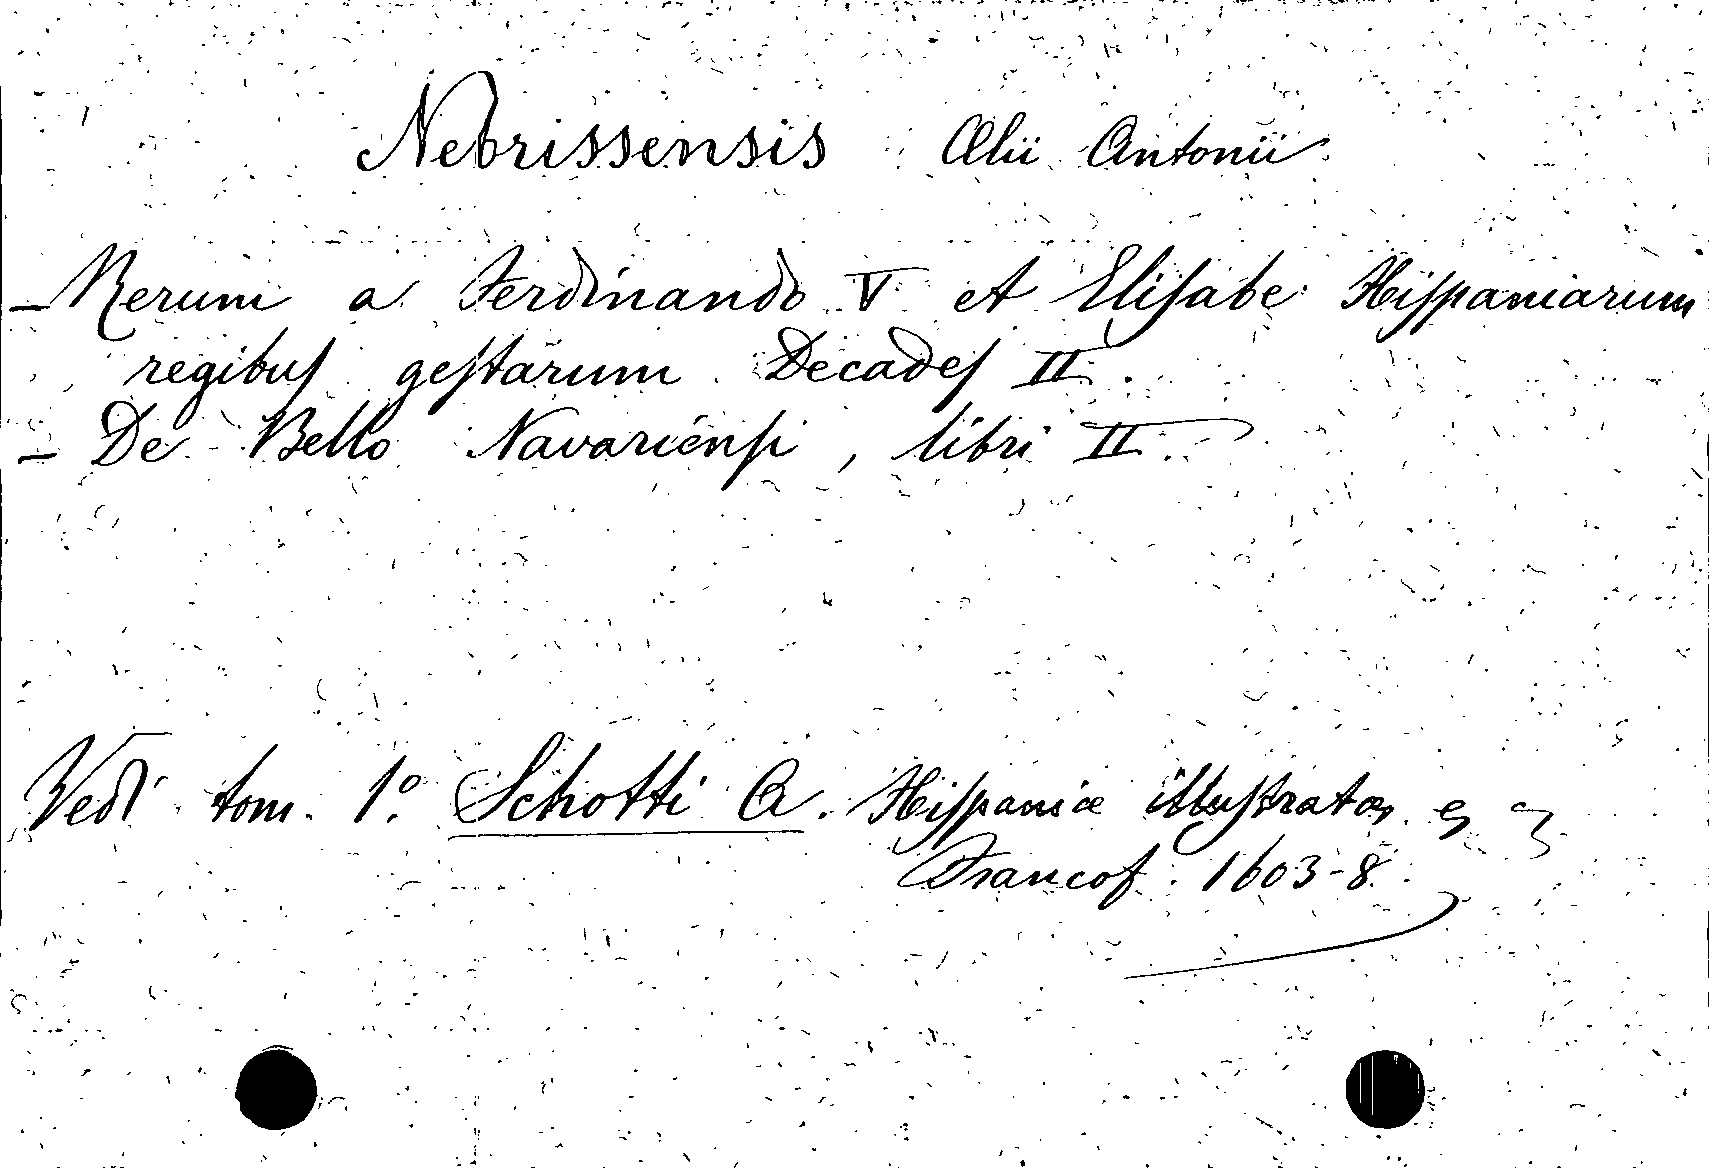 Nebrissensis Ælii Antonii
- Rerum a Ferdinando V et Eliſabe Hiſpaniarum
regibuſ geſtarum Decadeſ II.
- De Bello Navarienſi, libri II.
Vedi tom. 1º. Schotti A. Hiſpaniæ illuſtratæ
Francof. 1603-8.